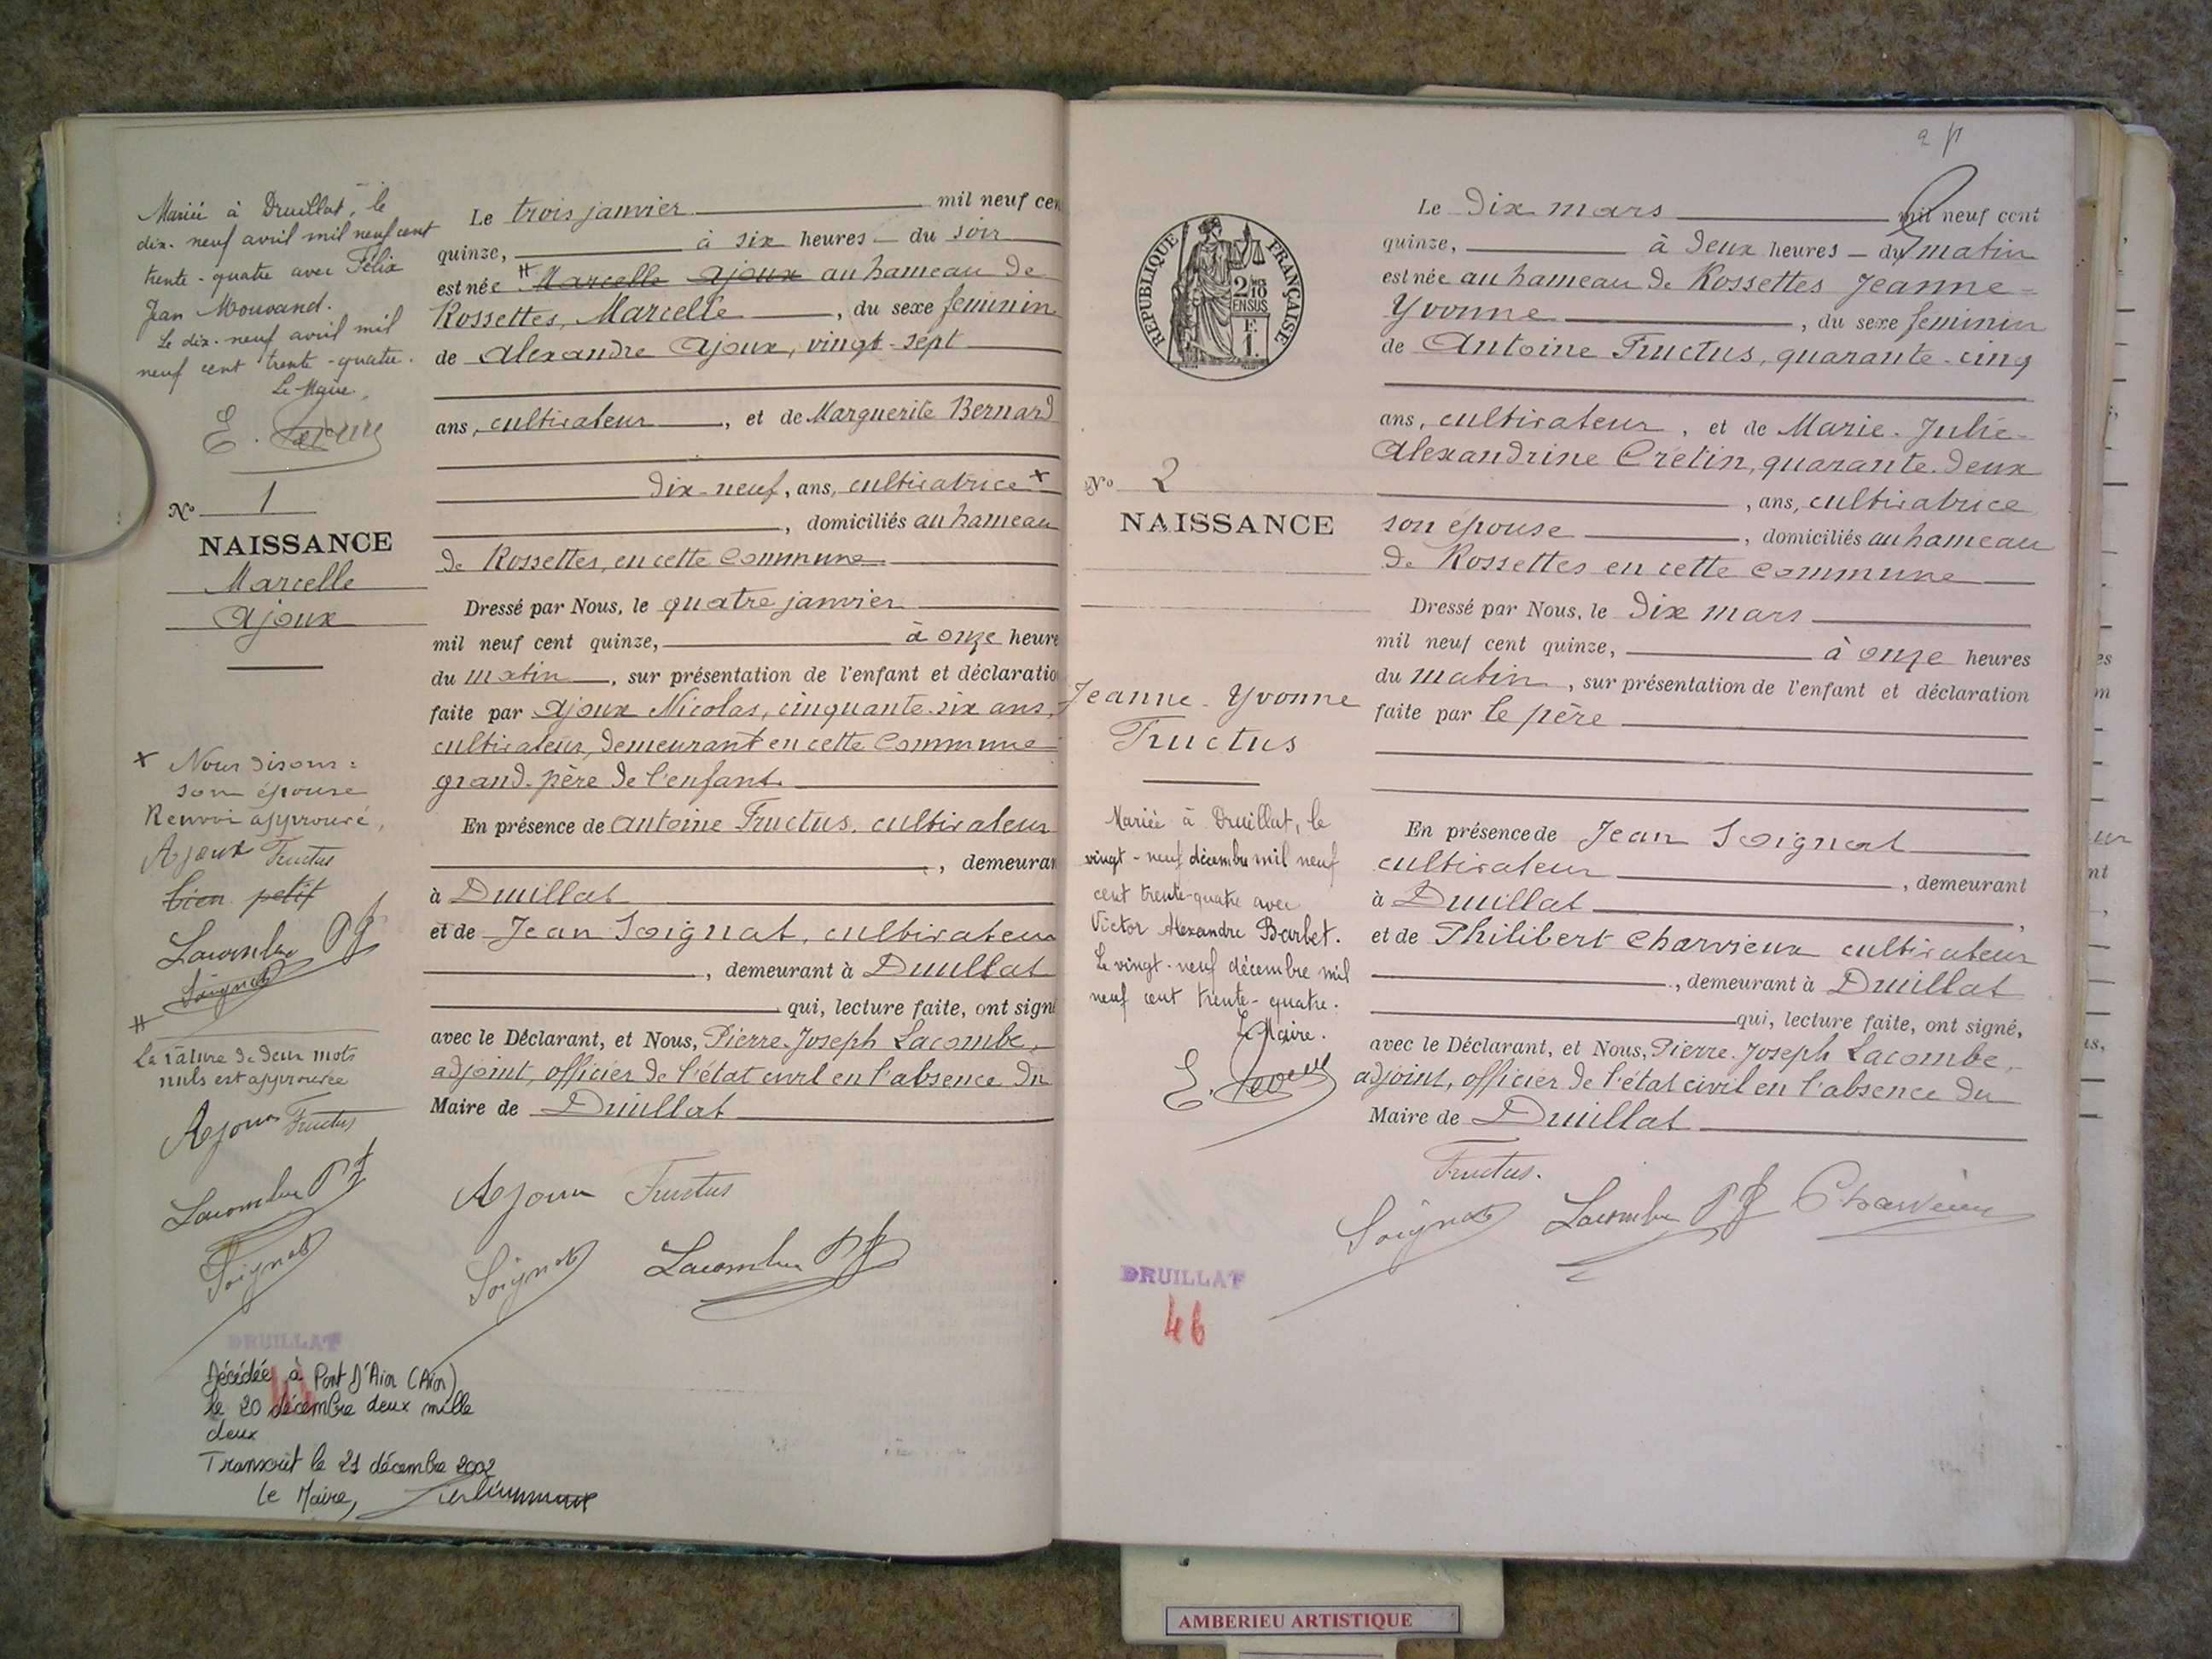 Mariée à Druillat, le
dix-neuf avril mil neuf cent
trente-quatre avec Félix
Jean Mouvand.
Le dix-neuf avril mil
neuf cent trente-quatre.
Le Maire,
N° 1
NAISSANCE
Marcelle
Ajoux
x Nous disons :
son épouse
Renvoi approuvé,
Ajoux Fructus
bien petit
Lacombe PJ
Soignat
#
La rature de deux mots
nuls est approuvée
Ajoux Fructus
Lacombe PJ
Soignat
DRUILLAT
Décédée à Pont D'Ain (Ain)
le 20 décembre deux mille
deux
Transcrit le 21 décembre 2002
Le Maire,
Le trois janvier mil neuf cen
quinze, à six heures du soir
est née # Marcelle Ajoux au hameau de
Rossettes, Marcelle, du sexe feminin
de Alexandre Ajoux, vingt-sept
ans, cultivateur, et de Marguerite Bernard
dix-neuf, ans, cultivatrice x
, domiciliés au hameau
de Rossettes, en cette commune
Dressé par Nous, le quatre janvier
mil neuf cent quinze, à onze heure
du matin, sur présentation de l'enfant et déclaratio
faite par Ajoux Nicolas, cinquante-six ans,
cultivateur, demeurant en cette commune
grand-père de l'enfant.
En présence de Antoine Fructus, cultivateur
, demeuran
à Druillat
et de Jean Soignat, cultivateur
, demeurant à Druillat
qui, lecture faite, ont signé
avec le Déclarant, et Nous, Pierre-Joseph Lacombe,
adjoint, officier de l'état civil en l'absence du
Maire de Druillat
Ajoux Fructus
Soignat Lacombe PJ
RÉPUBLIQUE FRANÇAISE
2/10
EN SUS
F.
1.
N° 2
NAISSANCE
Jeanne-Yvonne
Fructus
Mariée à Druillat, le
vingt-neuf décembre mil neuf
cent trente-quatre avec
Victor Alexandre Barbet.
Le vingt-neuf décembre mil
neuf cent trente-quatre.
Le Maire.
DRUILLAT
46
Le dix mars mil neuf cent
quinze, à deux heures du matin
est née au hameau de Rossettes Jeanne-
Yvonne, du sexe feminin
de Antoine Fructus, quarante-cinq
ans, cultivateur, et de Marie-Julie-
Alexandrine Crétin, quarante-deux
, ans, cultivatrice
son épouse, domiciliés au hameau
de Rossettes en cette commune
Dressé par Nous, le dix mars
mil neuf cent quinze, à onze heures
du matin, sur présentation de l'enfant et déclaration
faite par le père
En présence de Jean Soignat
cultivateur, demeurant
à Druillat,
et de Philibert Charvieux cultivateur
, demeurant à Druillat
qui, lecture faite, ont signé,
avec le Déclarant, et Nous, Pierre-Joseph Lacombe,
adjoint, officier de l'état civil en l'absence du
Maire de Druillat
Fructus.
Soignat Lacombe PJ Charvieux
AMBERIEU ARTISTIQUE